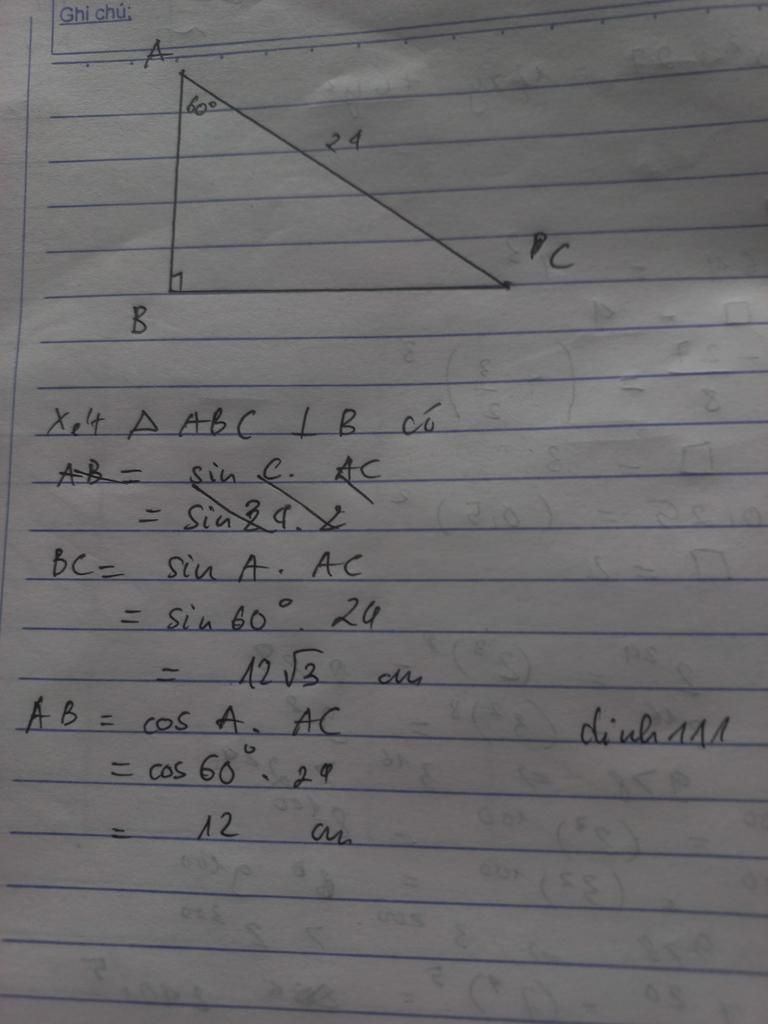 Ghi chú:
A
60°
24
C
B
Xét Δ ABC ⊥ B có
AB = sin C. AC
= sin
BC = sin A. AC
= sin 60°. 24
= 12√3 cm
AB = cos A. AC
dinh111
= cos 60°. 24
= 12 cm